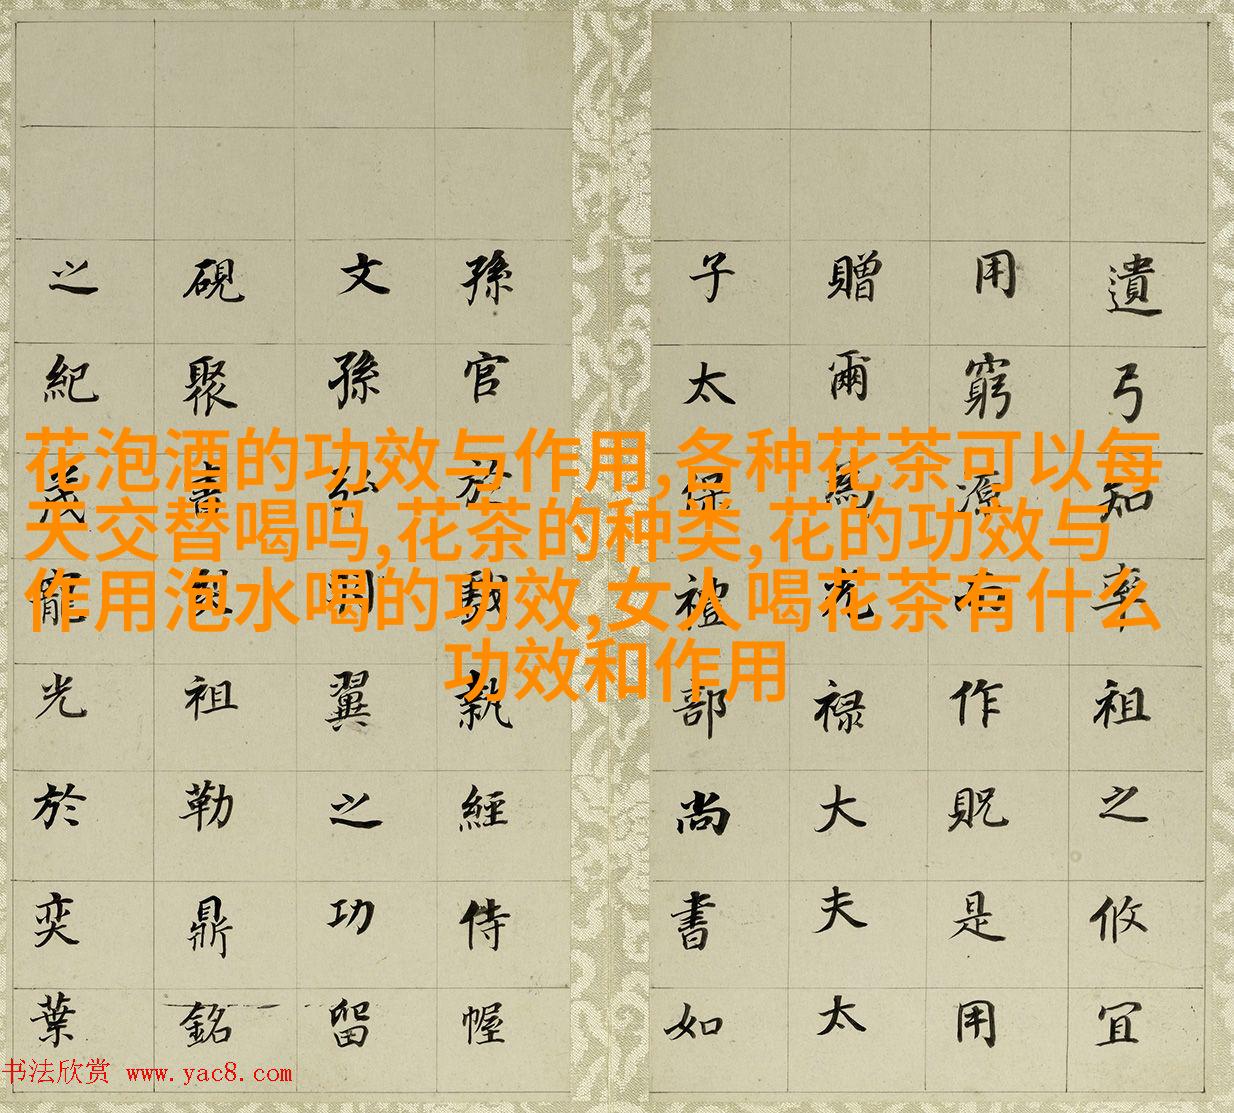 遺弓知率祖之攸宜
用窮源作貺是用
贈爾為光祿大夫太
子太保禮部尚書如
孫官於戲執經侍幄
文孫弘翼之功留
硯聚書祖勒鼎銘
之紀茂寵光於奕葉
花泡酒的功效与作用,各种花茶可以每
天交替喝吗,花茶的种类,花的功效与
作用泡水喝的功效,女人喝花茶有什么
功效和作用
书法欣赏 www.yac8.com